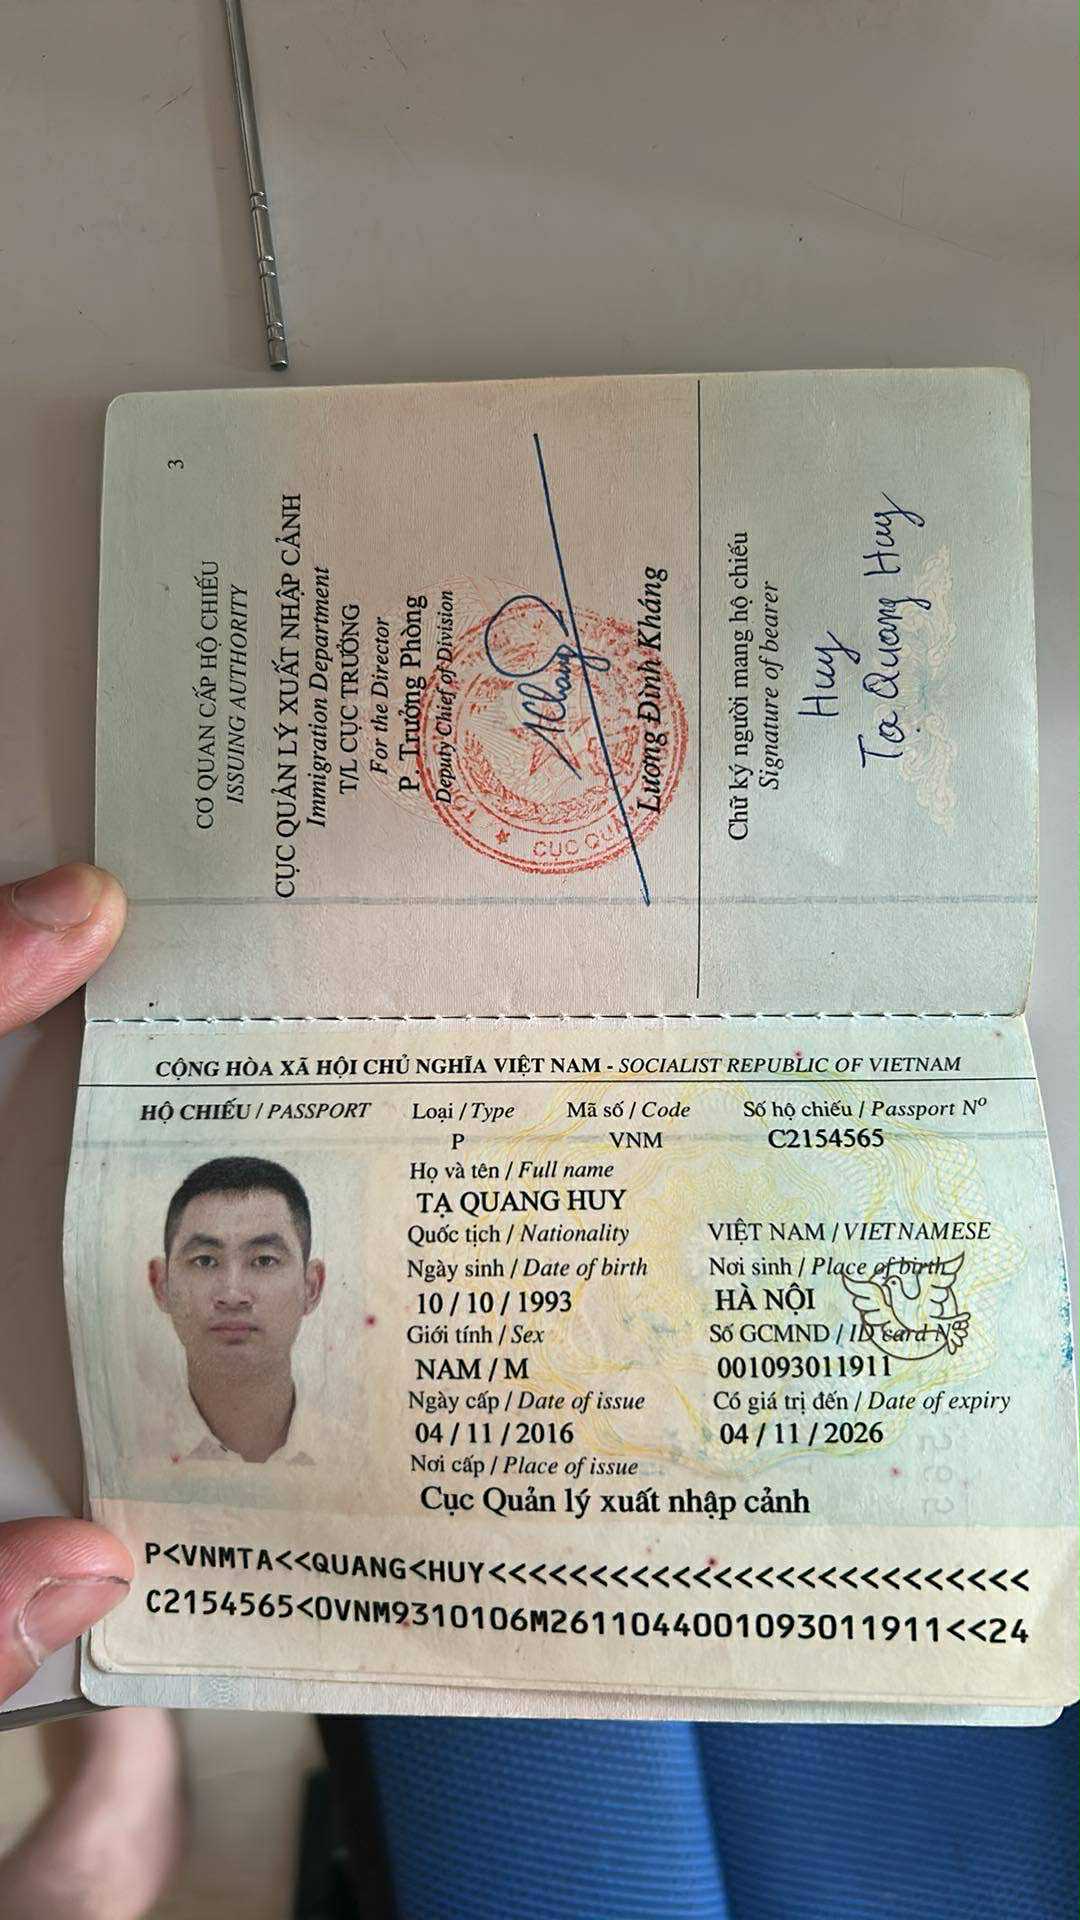 3
CƠ QUAN CẤP HỘ CHIẾU
ISSUING AUTHORITY
CỤC QUẢN LÝ XUẤT NHẬP CẢNH
Immigration Department
T/L CỤC TRƯỞNG
For the Director
P. Trưởng Phòng
Deputy Chief of Division
CỤC QUẢN
Lương Đình Kháng
Chữ ký người mang hộ chiếu
Signature of bearer
Huy
Tạ Quang Huy
CỘNG HÒA XÃ HỘI CHỦ NGHĨA VIỆT NAM - SOCIALIST REPUBLIC OF VIETNAM
HỘ CHIẾU / PASSPORT Loại / Type Mã số / Code Số hộ chiếu / Passport Nº
P VNM C2154565
Họ và tên / Full name
TẠ QUANG HUY
Quốc tịch / Nationality VIỆT NAM / VIETNAMESE
Ngày sinh / Date of birth Nơi sinh / Place of birth
10 / 10 / 1993 HÀ NỘI
Giới tính / Sex Số GCMND / ID card Nº
NAM / M 001093011911
Ngày cấp / Date of issue Có giá trị đến / Date of expiry
04 / 11 / 2016 04 / 11 / 2026
Nơi cấp / Place of issue
Cục Quản lý xuất nhập cảnh
P<VNMTA<<QUANG<HUY<<<<<<<<<<<<<<<<<<<<<<<<<<
C2154565<0VNM9310106M2611044001093011911<<24